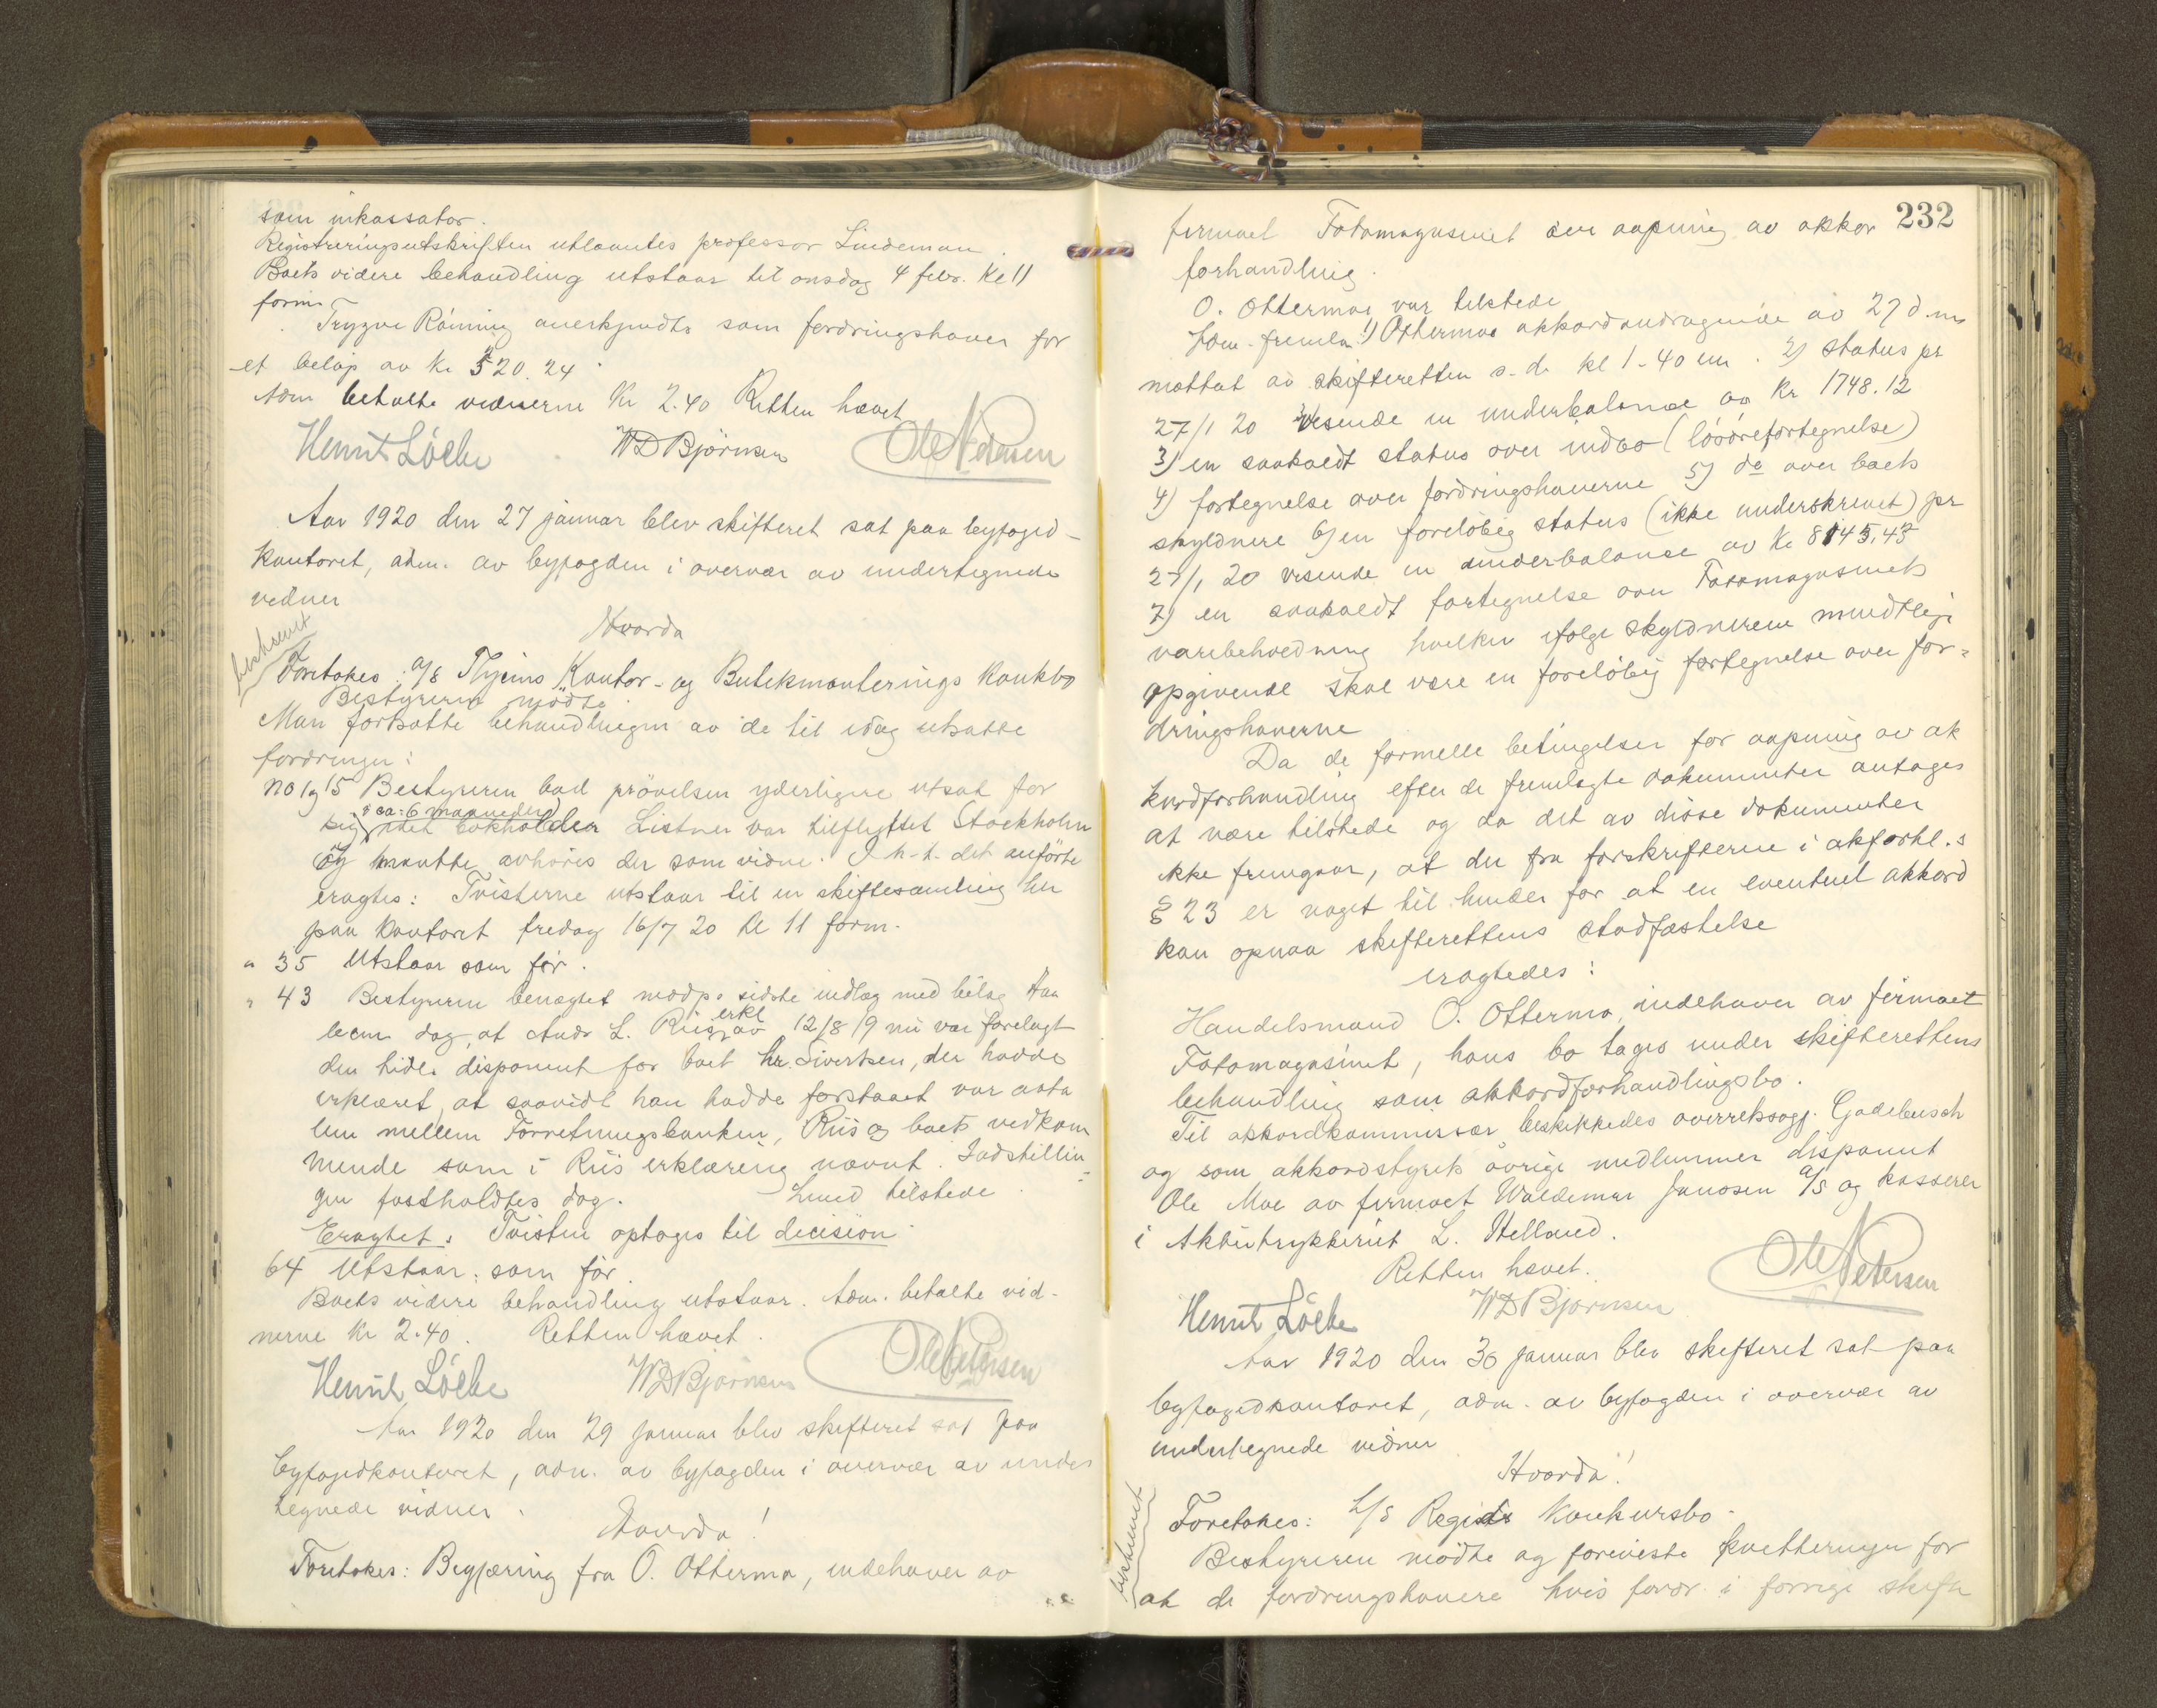 som inkassator.
Registreringsutskriften utlaantes professor Lindeman.
Boets videre behandling utstaar til onsdag 4 febr. Kl 11
form.
Trygve Röning anerkjendtes som fordringshaver for
et belöp av Kr 520.24.
Adm betalte vidnerne Kr 2.40 Retten hævet
WD Björnsen Ole N Pedersen
Aar 1920 den 27 januar blev skifteret sat paa byfoged-
kontoret, adm. av byfogden i overvær av undertegnede
vidner
Hvorda
beskrevet
Foretokes: A/S Kontor- og Butikmonterings konkbo
Bestyreren mödte.
Man fortsatte behandlingen av de til idag utsatte
fordringer:
no 1 og 15 Bestyreren bad prövelsen yderligere utsat for
i ca: 6 maaneder
sig idet bokholder Listner var tilflyttet Stockholm
og maatte avhöres der som vidne. I h.t. det anförte
eragtes: Tvisterne utstaar til en skiftesamling her
paa kontoret fredag 16/7 20 kl 11 form.
" 35 Utstaar som för.
" 43 Bestyreren benegtet modp.s sidste indlæg med bilag Han
bem dog, at Andr L. Riis erkl av 12/8 19 nu var forelagt
den tids disponent for boet hr. Sivertsen, der hadde
erklæret, at saavidt han hadde forstaaet var avta
len mellem Forretningsbanken, Riis og boets vedkom
mende som i Riis erklæring nævnt. Indstillin=
gen fastholdtes dog. Lund tilstede.
Eragtet: Tvisten optages til decision.
64 Utstaar: som för.
Boets videre behandling utstaar. Adm. betalte vid-
nerne Kr 2.40. Retten hævet.
WD Björnsen Ole N Pedersen
Aar 1920 den 29 januar blev skifteret sat paa
byfogedkontoret, adm. av byfogden i overvær av under
tegnede vidner.
Hvorda!
Foretokes: Begjæring fra O. Ottermo, indehaver av
232
firmaet Fotomagasinet om aapning av akkor
forhandling.
O. Ottermo var tilstede
Adm. fremla 1) Ottermos akkordandragende av 27 d.m
mottat av skifteretten s.d. kl 1.40 em. 2) Status pr
27/1 20 visende en underbalanse av Kr 1748.12
3) en saakaldt status over indbo (lösörefortegnelse)
4) fortegnelse over fordringshaverne 5) do over boets
skyldnere 6) en foreløbig status (ikke underskrevet) pr
27/1 20 visende en underbalanse av Kr 8145,43
7) en saakaldt fortegnelse over Fotomagasinets
varebeholdning hvilken ifølge skyldnerens mundtlige
opgivende skal være en foreløbig fortegnelse over for=
dringshaverne
Da de formelle betingelser for aapning av ak
kordforhandling efter de fremlagte dokumenter antages
at være tilstede og da det av disse dokumenter
ikke fremgaar, at der fra forskrifterne i akforhl.s
§ 23 er noget til hinder for at en eventuel akkord
kan opnaa skifterettens stadfæstelse
eragtedes:
Handelsmand O. Ottermo, indehaver av firmaet
Fotomagasinet, hans bo tages under skifterettens
behandling som akkordforhandlingsbo.
Til akkordkommissær beskikkedes overretssagf. Gadebusch
og som akkordstyrets övrige medlemmer disponent
Ole Moe av firmaet Waldemar Janssen A/S og kasserer
i Aktietrykkeriet L. Helland.
Retten hævet.
WD Björnsen Ole N Pedersen
Aar 1920 den 30 januar blev skifteret sat paa
byfogedkontoret, adm. av byfogden i overvær av
undertegnede vidner
Hvorda!
beskrevet
Foretokes: Konkursbo.
Bestyreren mødte og foreviste kvitteringer for
at de fordringshavere hvis fordr. i forrige skifte